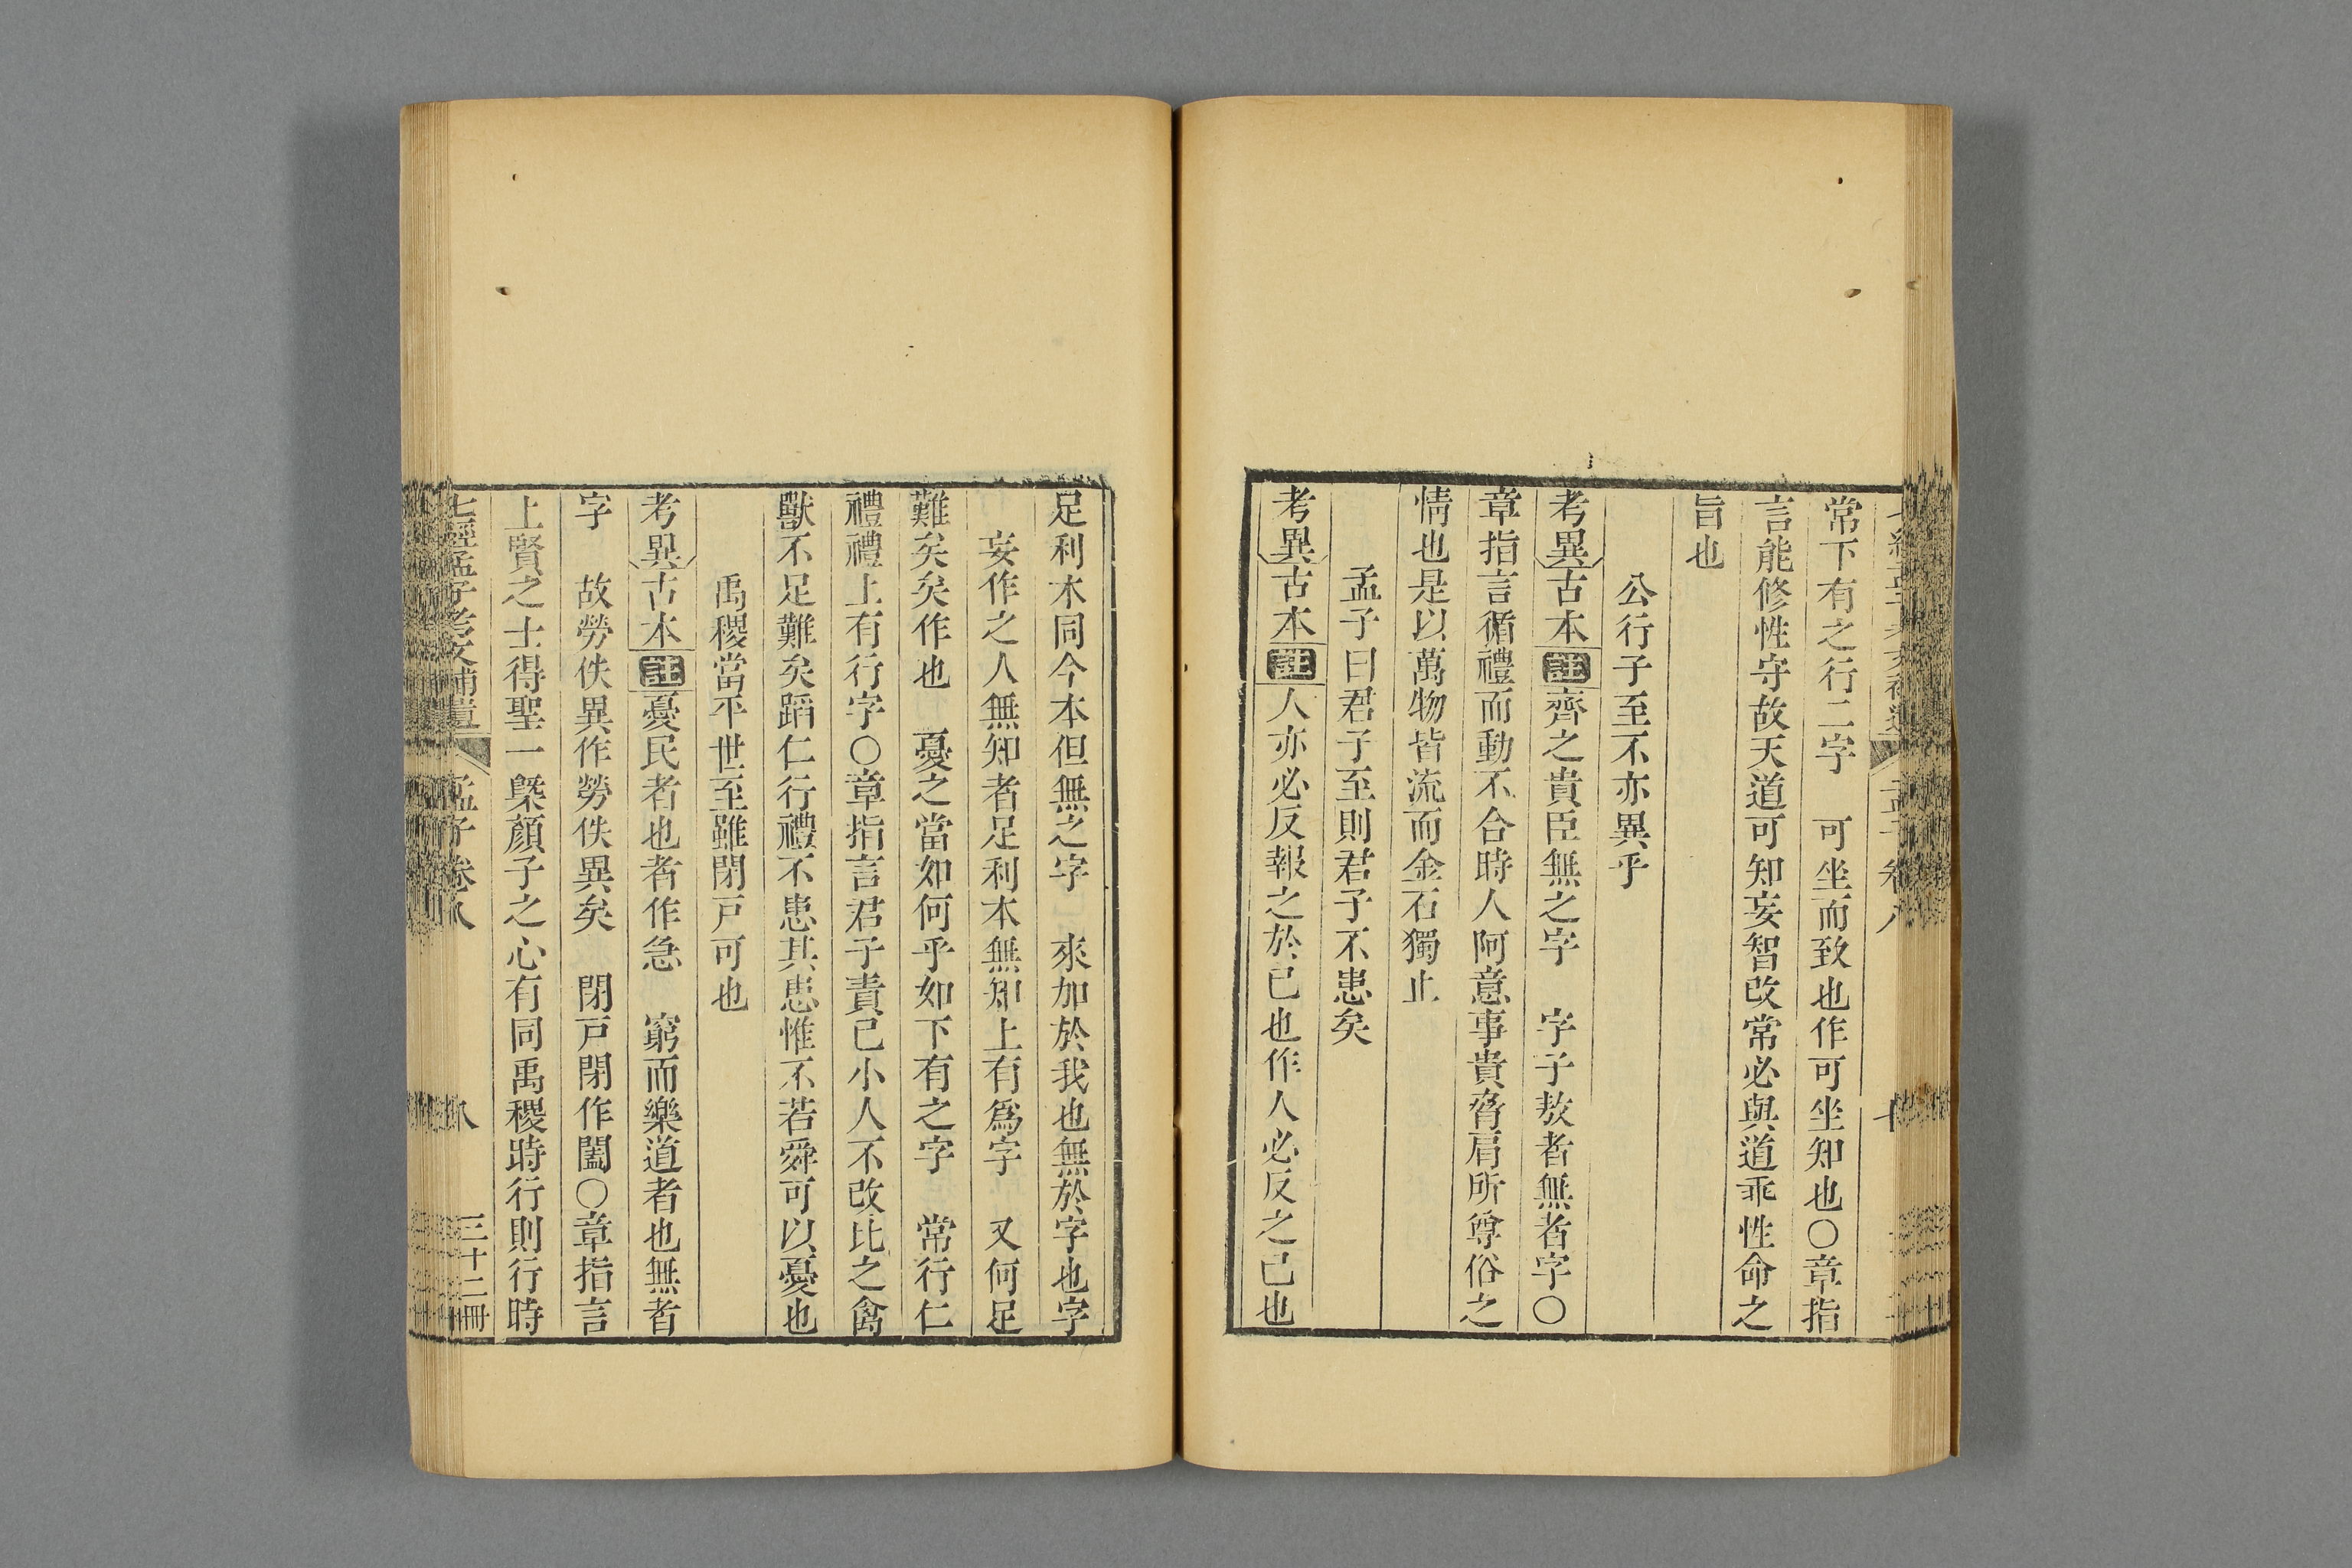 常下有之行二字　可坐而致也作可坐知也〇章指
言能修性守故天道可知妄智改常必與道乖性命之
旨也
公行子至不亦異乎
考異古本註齊之貴臣無之字　字子敖者無者字〇
章指言循禮而動不合時人阿意事貴脅肩所尊俗之
情也是以萬物皆流而金石獨止
孟子曰君子至則君子不患矣
考異古本註人亦必反報之於己也作人必反之己也
足利本同今本但無之字　來加於我也無於字也字
妄作之人無知者足利本無知上有爲字　又何足
難矣矣作也　憂之當如何乎如下有之字　常行仁
禮禮上有行字〇章指言君子責己小人不改比之禽
獸不足難矣蹈仁行禮不患其患惟不若舜可以憂也
禹稷當平世至雖閉戸可也
考異古本註憂民者也者作急　窮而樂道者也無者
字　故勞佚異作勞佚異矣　閉戸閉作闔〇章指言
上賢之士得聖一槩顏子之心有同禹稷時行則行時
七經孟子考文補遺　孟子卷八　八　三十二冊